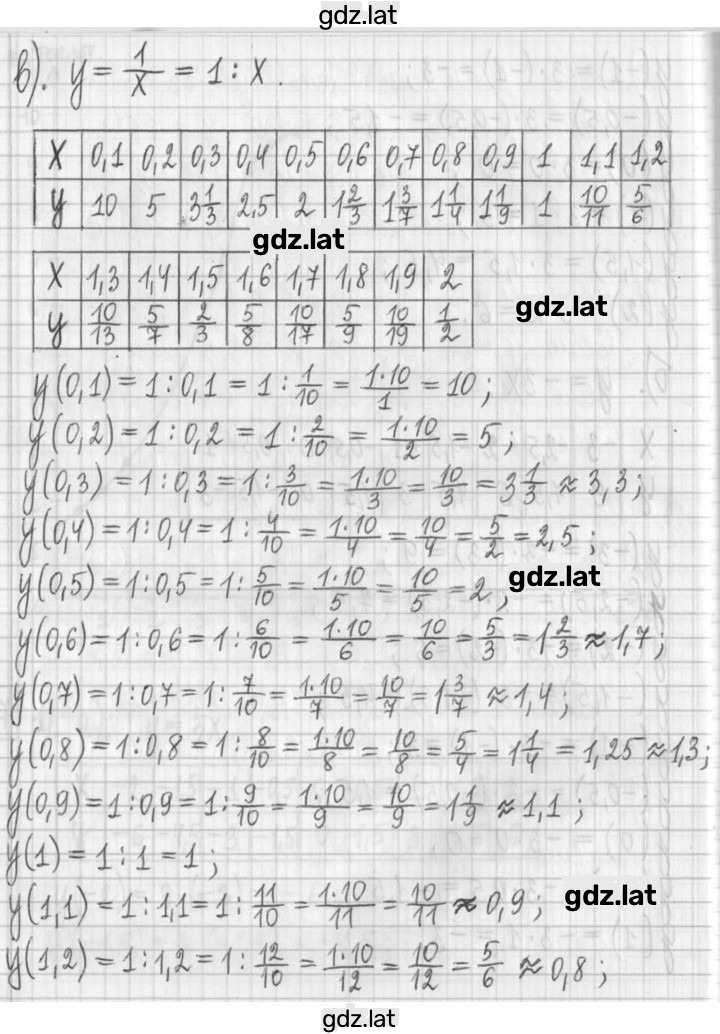 gdz.lat
в). y = 1/x = 1 : x.
x 0,1 0,2 0,3 0,4 0,5 0,6 0,7 0,8 0,9 1 1,1 1,2
y 10 5 3 1/3 2,5 2 1 2/3 1 3/7 1 1/4 1 1/9 1 10/11 5/6
gdz.lat
x 1,3 1,4 1,5 1,6 1,7 1,8 1,9 2
y 10/13 5/7 2/3 5/8 10/17 5/9 10/19 1/2
gdz.lat
y(0,1) = 1 : 0,1 = 1 : 1/10 = 1·10/1 = 10 ;
y(0,2) = 1 : 0,2 = 1 : 2/10 = 1·10/2 = 5 ;
y(0,3) = 1 : 0,3 = 1 : 3/10 = 1·10/3 = 10/3 = 3 1/3 ≈ 3,3 ;
y(0,4) = 1 : 0,4 = 1 : 4/10 = 1·10/4 = 10/4 = 5/2 = 2,5 ;
y(0,5) = 1 : 0,5 = 1 : 5/10 = 1·10/5 = 10/5 = 2 ;
gdz.lat
y(0,6) = 1 : 0,6 = 1 : 6/10 = 1·10/6 = 10/6 = 5/3 = 1 2/3 ≈ 1,7 ;
y(0,7) = 1 : 0,7 = 1 : 7/10 = 1·10/7 = 10/7 = 1 3/7 ≈ 1,4 ;
y(0,8) = 1 : 0,8 = 1 : 8/10 = 1·10/8 = 10/8 = 5/4 = 1 1/4 = 1,25 ≈ 1,3 ;
y(0,9) = 1 : 0,9 = 1 : 9/10 = 1·10/9 = 10/9 = 1 1/9 ≈ 1,1 ;
y(1) = 1 : 1 = 1 ;
y(1,1) = 1 : 1,1 = 1 : 11/10 = 1·10/11 = 10/11 ≈ 0,9 ;
gdz.lat
y(1,2) = 1 : 1,2 = 1 : 12/10 = 1·10/12 = 10/12 = 5/6 ≈ 0,8 ;
gdz.lat